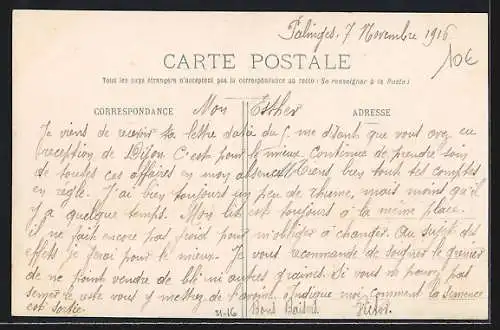 Palinges, 7 Novembre 1916
10€
CARTE POSTALE
Tous les pays étrangers n'acceptent pas la correspondance au recto (Se renseigner à la Poste)
CORRESPONDANCE
ADRESSE
Mon Esther
Je viens de recevoir ta lettre datée du 5 me disant que vous avez eu
reception de Dijon. C'est pour le mieux. Continue de prendre soin
de toutes ces affaires en mon absence. Tiens bien tout tes comptes
en règle. J'ai bien toujours un peu de rhume, mais moins qu'il
y a quelque temps. Mon lit est toujours à la même place.
il ne fait encore pas froid pour m'obliger à changer. Au sujet des
effets je ferai pour le mieux. Je vous recommande de soigner le grenier
de ne point vendre de blé ni autres graines. Si vous ne pouvez pas
semer le reste vous y mettrez de l'avoine. Indique moi comment la semence
est sortie.
31-16
Bons Baisers.